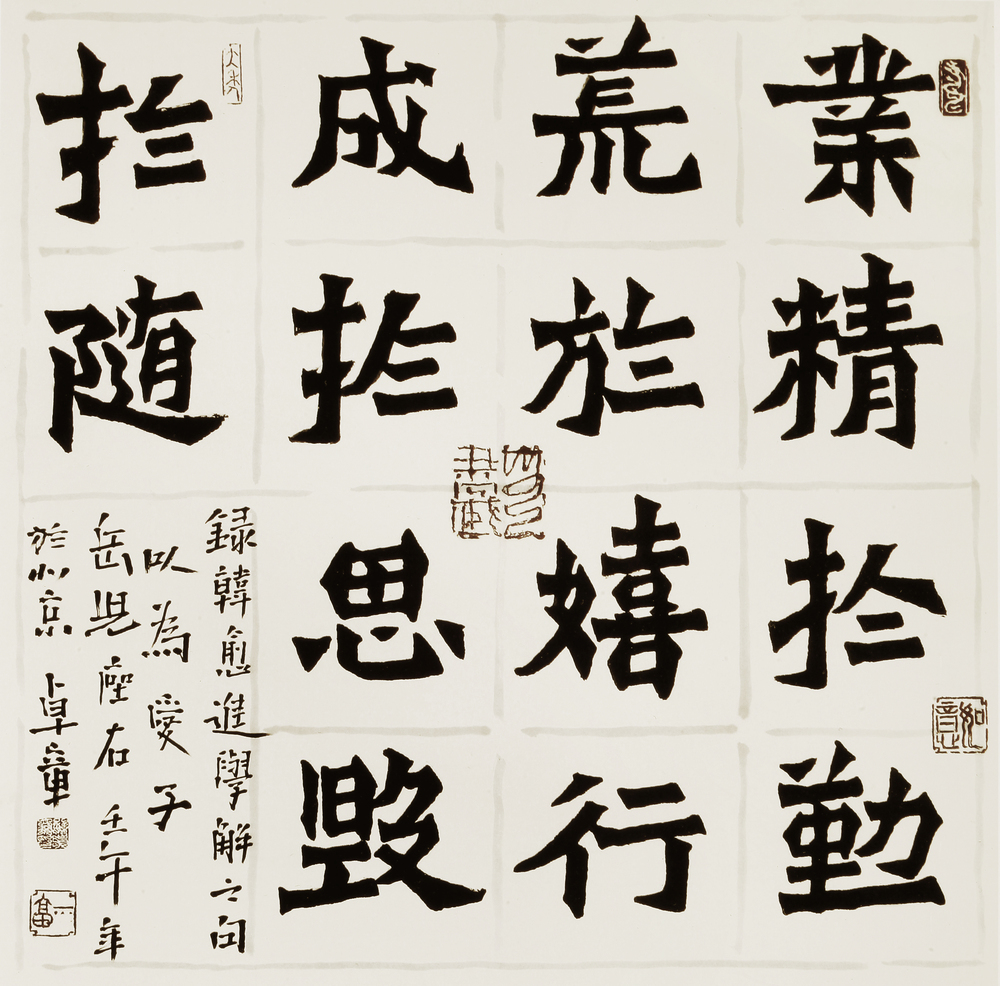 業精扵勤
荒於嬉行
成扵思毀
扵随
録韓愈進學解之句
以為愛子
岳児座右壬午年
於北京卓章
如意